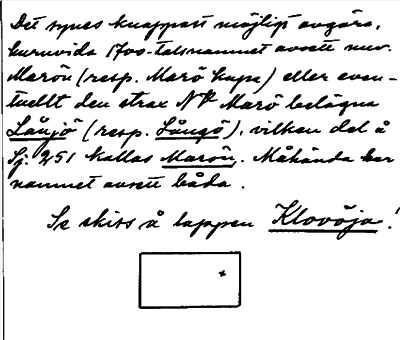 Det synes knappast möjligt avgöra,
huruvida 1700-talsnamnet avsett nuv.
Marön (resp. Marö kupa) eller even-
tuellt den strax NV Marö belägna
Långö (resp. Långö), vilken del å
Sj. 251 kallas Marön. Måhända har
namnet avsett båda.
Se skiss å lappen Klovöja!